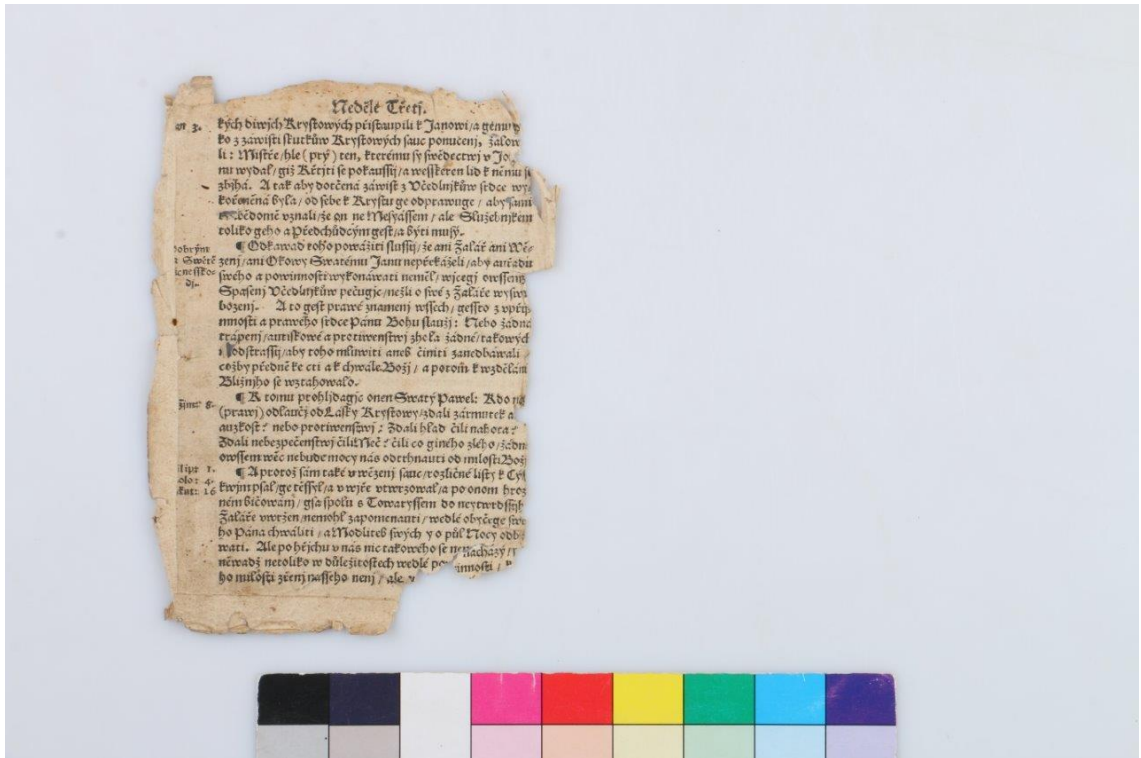 Neděle Třetj.
kých diwých Krystowých přistaupili k Janowi/a
ko z záwisti skutkůw Krystowých sauc ponuceni,
li: Mistře/hle (prý) ten, kterémus y swědectwj w
nu wydal/giž Křtjti se pokaussý/a wesskeren lid k němu
zbjhá. A tak aby dotčená záwist z Včedlnjkůw srdce
kořeněná byla/od sebe k Krystu ge odprawuge/aby sami
wědomě vznali/že on ne Mesyássem/ale Služebnjkem
toliko geho a Předchůdcým gest/a býti musý.
¶ Odkawad toho powážiti slussý/že ani Žalář ani
zenj/ani Okowy Swatému Janu nepřekáželi/aby auřadu
swého a powinnosti wykonáwati neměl/wjcegj owssem
Spasenj Včedlnjkůw pečugic/nežli o swé z Žaláře
bozenj. A to gest prawé znamenj wssech/gessto z
mnosti a prawého srdce Pánu Bohu slaužj: Nebo žádná
trápenj/autiskowé a protiwenstwj zhola žádné/
odstrassý/aby toho mluwiti aneb činiti zanedbawali
cožby předně ke cti a k chwále Božj/a potom k
Bližnjho se wztahowalo.
¶ K tomu prohljdagjc onen Swatý Pawel: Kdo
(prawj) odlaučj od Lásky Krystowy/zdali zármutek
auzkost? nebo protiwenstwj? Zdali hlad čili nahota?
Zdali nebezpečenstwj čili Meč? čili co giného zlého/
owssem wěc nebude mocy nás odtrhnauti od milosti
¶ A protož sám také w wězenj sauc/rozličné listy k
psal/ge těssyl/a w wjře vtwrzowal/a po onom
ném bičowanj/gsa spolu s Towaryssem do
Žaláře wwržen/nemohl zapomenauti/wedlé obyčege
ho Pána chwáliti/a Modliteb swých y o půl Nocy
wati. Ale pohřjchu v nás nic takowého se
něwadž netoliko w důležitostech wedlé
ho milosti zřenj nasseho nenj/ale
3.
dobrým
Swětě
dj.
8.
1.
4.
16